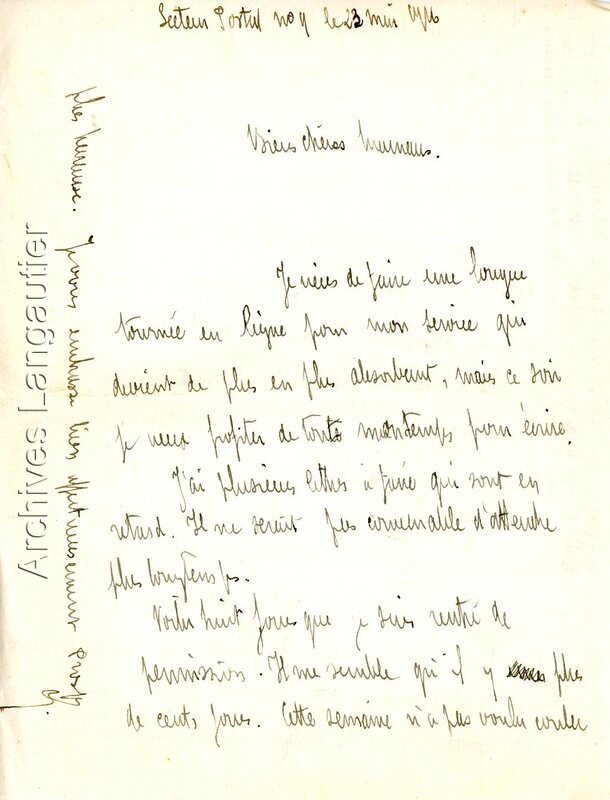 Secteur Postal no 9 le 23 mai 1916
Bien chères Mamans.
Je viens de faire une longue
tournée en ligne pour mon service qui
devient de plus en plus absorbant, mais ce soir
je veux profiter de tout mon temps pour écrire.
J'ai plusieurs lettres à faire qui sont en
retard. Il ne serait pas convenable d'attendre
plus longtemps.
Voilà huit jours que je suis rentré de
permission. Il me semble qu'il y plus
de cents jours. Cette semaine n'a pas voulu couler
plus heureuse. Je vous embrasse bien affectueusement
Archives Langautier